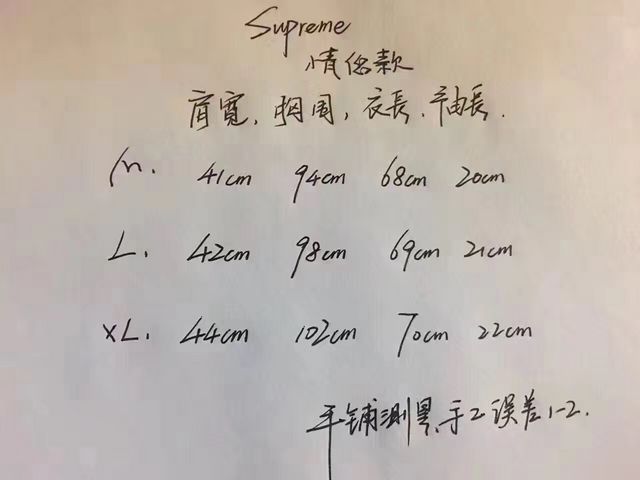 Supreme
情侣款
肩寬, 胸围, 衣長, 袖長.
M. 41cm 94cm 68cm 20cm
L. 42cm 98cm 69cm 21cm
XL. 44cm 102cm 70cm 22cm
平铺测量, 手工误差1-2.